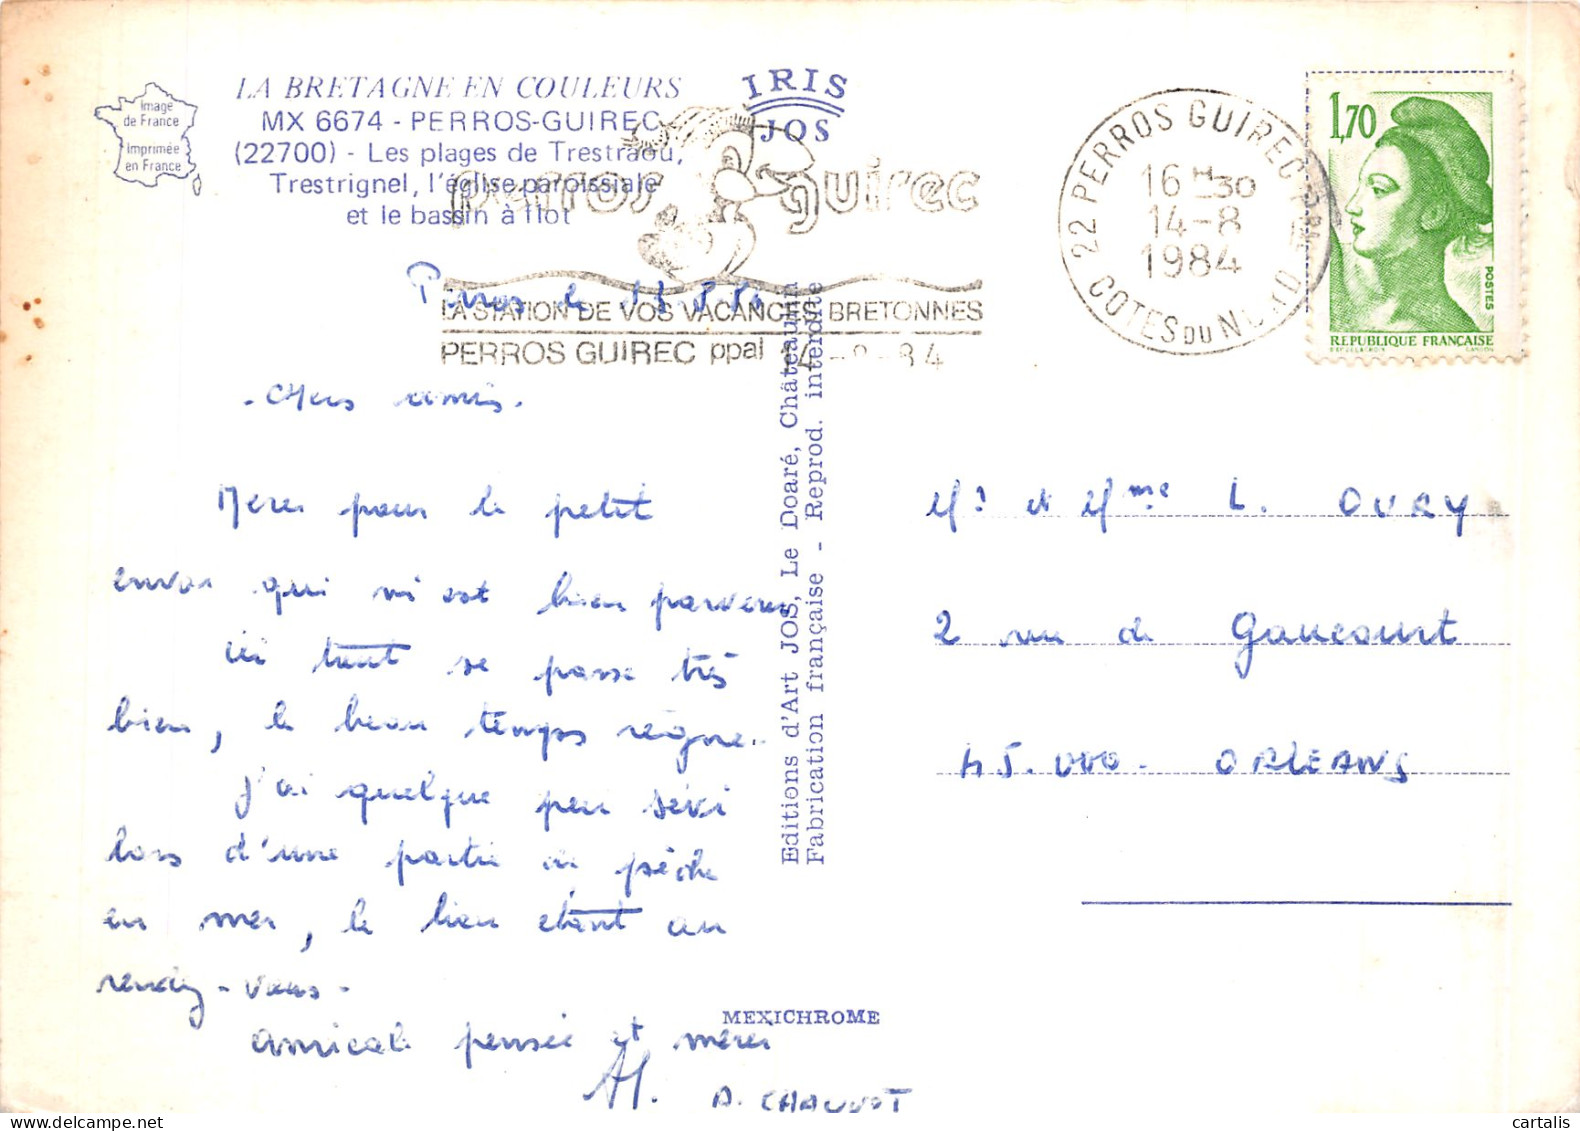 Image
de France
Imprimée
en France
LA BRETAGNE EN COULEURS
MX 6674 - PERROS-GUIREC
(22700) - Les plages de Trestraou,
Trestrignel, l'église paroissiale
et le bassin à flot
IRIS
JOS
perros guirec
LA STATION DE VOS VACANCES BRETONNES
PERROS GUIREC ppal 14-8-84
22 PERROS GUIREC PPAL
16 H 30
14-8
1984
COTES DU NORD
1,70
POSTES
REPUBLIQUE FRANÇAISE
Perros le
- CHers amis.
Merci pour le petit
envoi qui m'est bien parvenu
ici tout se passe très
bien, le beau temps règne..
J'ai quelque peu sévi
lors d'une partie de pêche
en mer, le lieu étant au
rendez-vous-
amicale pensée et merci
A. CHAUVOT
Editions d'Art JOS, Le Doaré, Châteaulin
Fabrication française - Reprod. interdite
MEXICHROME
Mr et Mme L. OURY
2 rue de Gaucourt
45.000- ORLEANS
cartalis